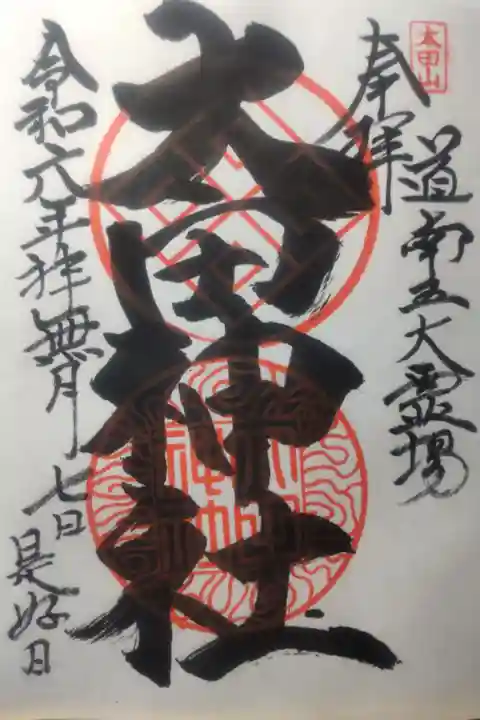 太田山
奉拜
道南五大霊場
太田神社
令和六年神無月七日
是好日